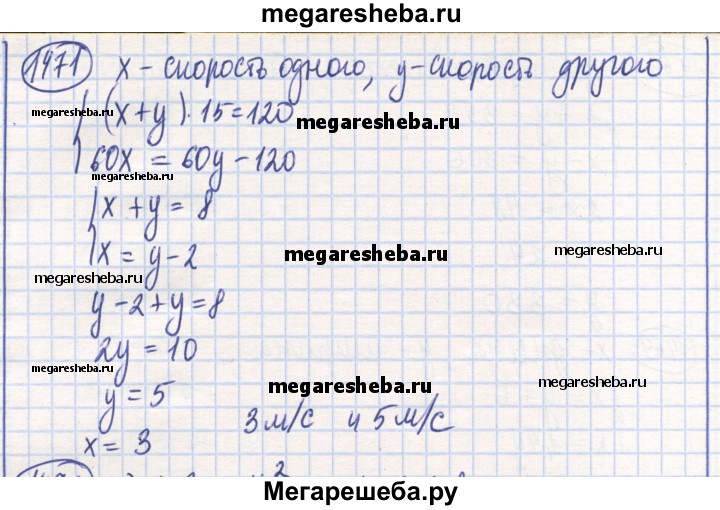 megaresheba.ru
1471 x - скорость одного, y - скорость другого
megaresheba.ru
(x+y)·15=120
megaresheba.ru
60x = 60y - 120
megaresheba.ru
x + y = 8
x = y - 2
megaresheba.ru
megaresheba.ru
megaresheba.ru
y - 2 + y = 8
2y = 10
megaresheba.ru
megaresheba.ru
megaresheba.ru
y = 5
x = 3
3 м/с и 5 м/с
Мегарешеба.ру